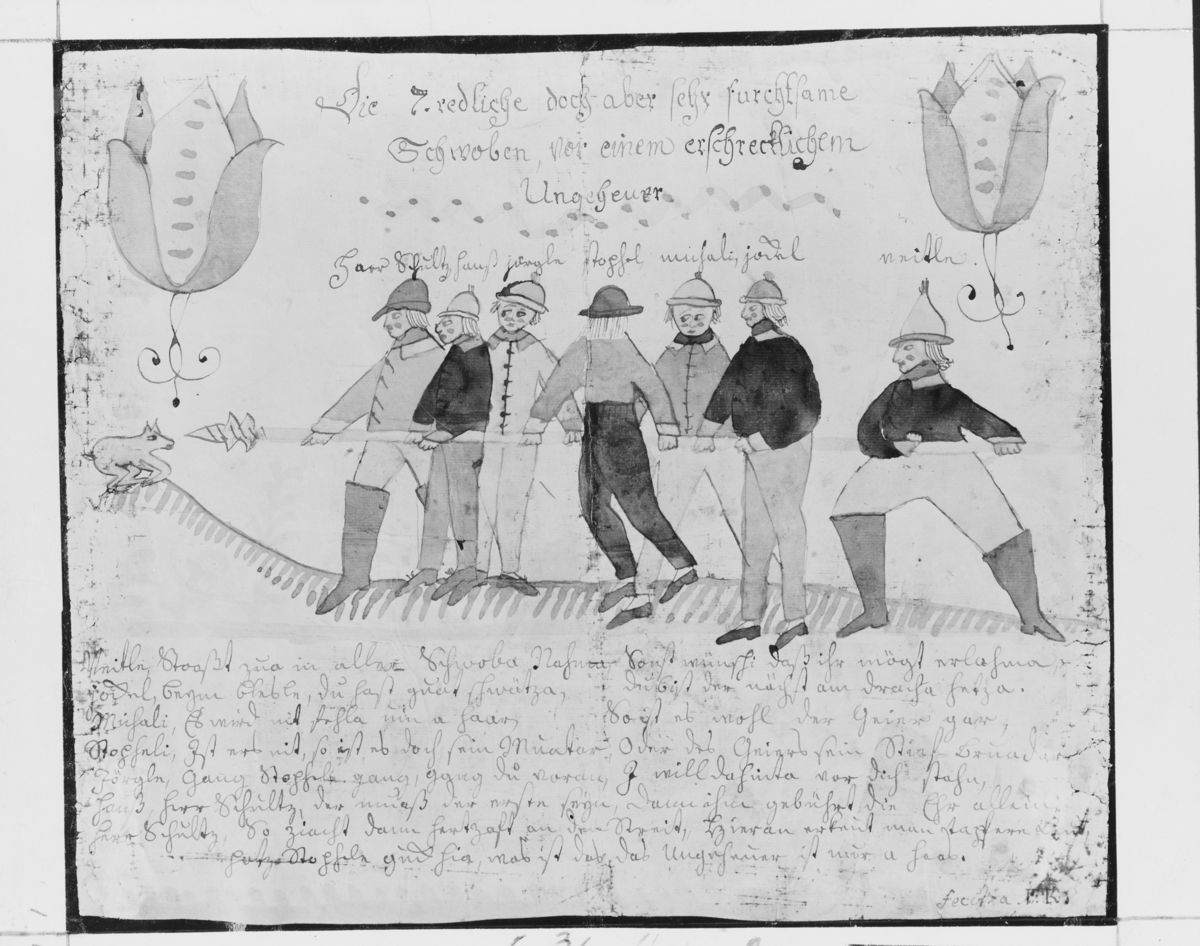 Die 7. redliche doch aber sehr furchtsame
Schwoben, vor einem erschrecklichem
Ungeheuer
Herr Schultz, hanß jörgle stophel michali, jodel veitle.
Veitle, Stooßt zua in aller Schwoba Nahma Sonst wünsch i daß ihr mögt erlahma,
Jodel, beym blesle, du hast guat schwätza, du bist der nächst am dracha hetza.
Michali, Es wird nit fehla um a haar, So ist es wohl der Geier gar,
Stopheli, Ist ers nit, so ist es doch sein Muatar, Oder des Geiers sein Stief bruadar
Jörgle, Gang Stophele gang, gang du voran, I will dahinta vor dich stahn,
hanß, herr Schultz der muaß der erste seyn, dann ihm gebührt die Ehr allein
herr Schultz, So ziacht dann hertzaft an den Streit, Hieran erkent man tapfere
potz Stophele guck hia, was ist das, das Ungeheuer ist nur a haas.
fecit a. F. K.